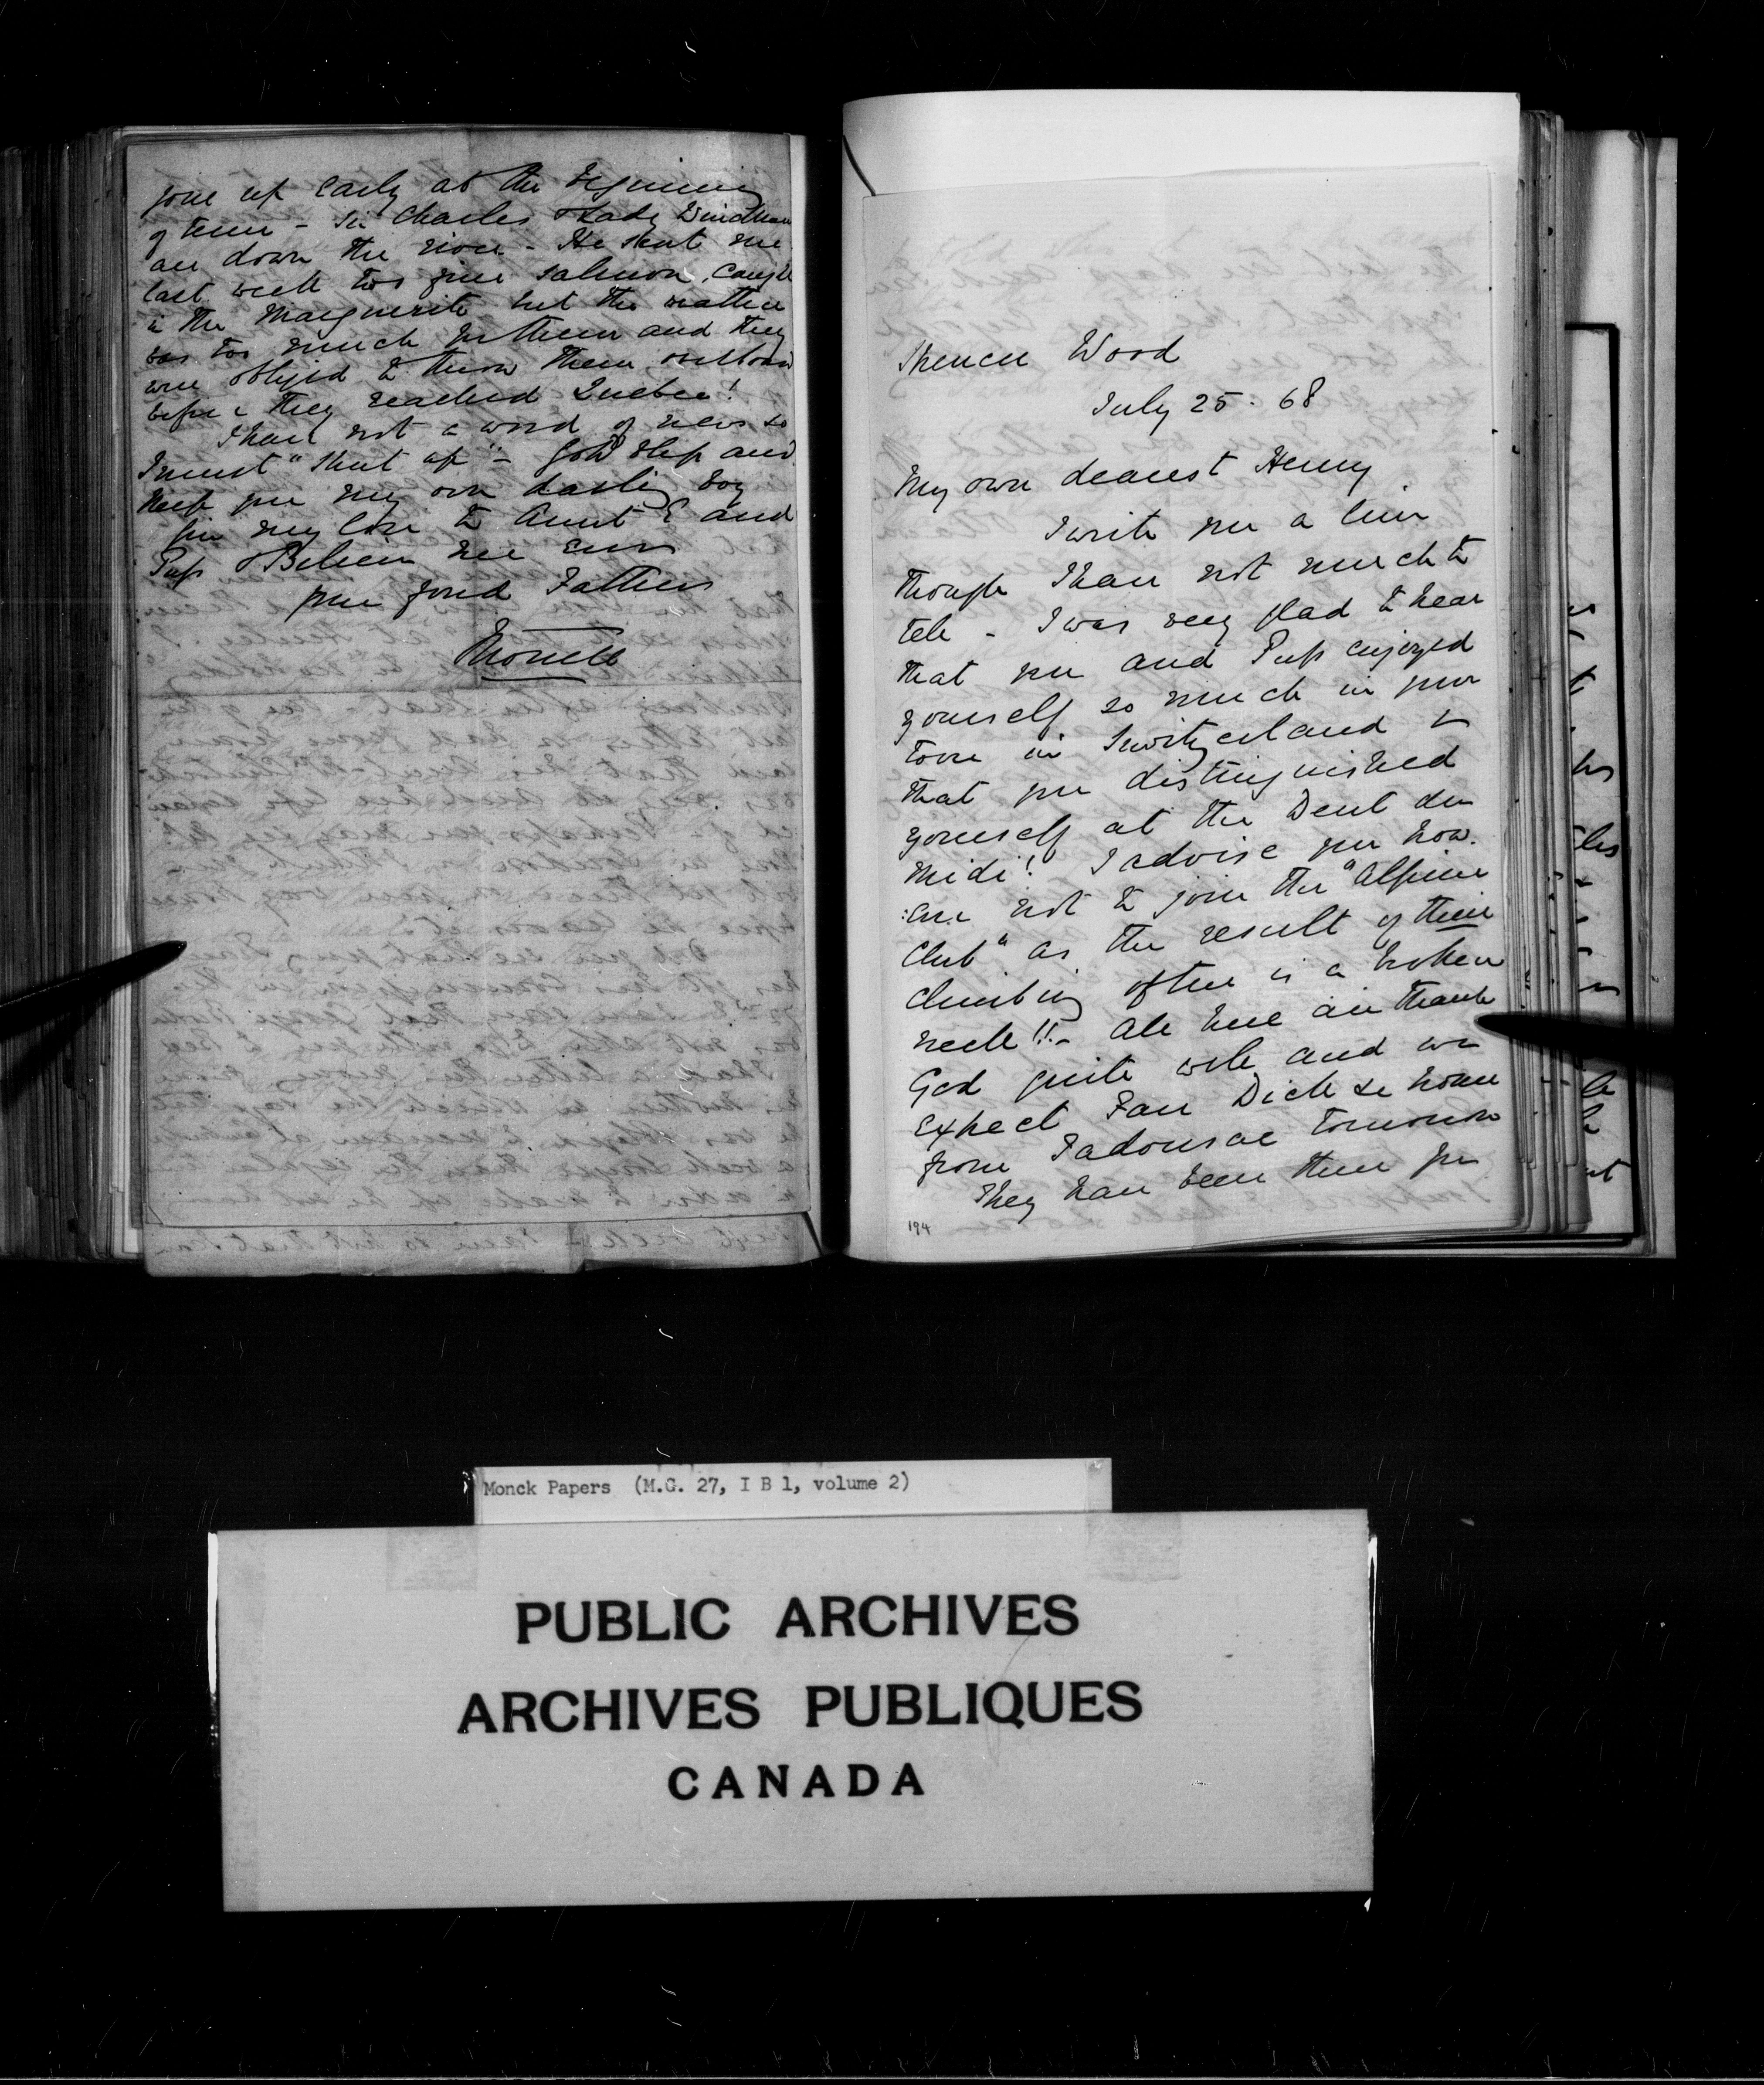 gone up early at the beginning
of term - Sir Charles & Lady Windham
are down the river - He sent me
last week two fine salmon caught
in the Marguerite but the weather
was too much for them and they
were obliged to throw them overboard
before they reached Quebec!
I have not a word of news so
I must "shut up" - God bless and
keep you my own darling boy
Give my love to Aunt E and
Pup & Believe me ever
your fond Father
Monck
Spencer Wood
July 25. 68
My own dearest Henry
I write you a line
though I have not much to
tell - I was very glad to hear
that you and Pup enjoyed
yourself so much in your
tour in Switzerland &
that you distinguished
yourself at the Dent du
Midi! I advise you how:
:ever not to join the "Alpine
Club" as the result of their
climbing often is a broken
neck!! - All here are thank
God quite well and we
expect Fan Dick &c home
from Tadousac tomorrow
They have been there for
194
Monck Papers (M.G. 27, I B 1, volume 2)
PUBLIC ARCHIVES
ARCHIVES PUBLIQUES
CANADA